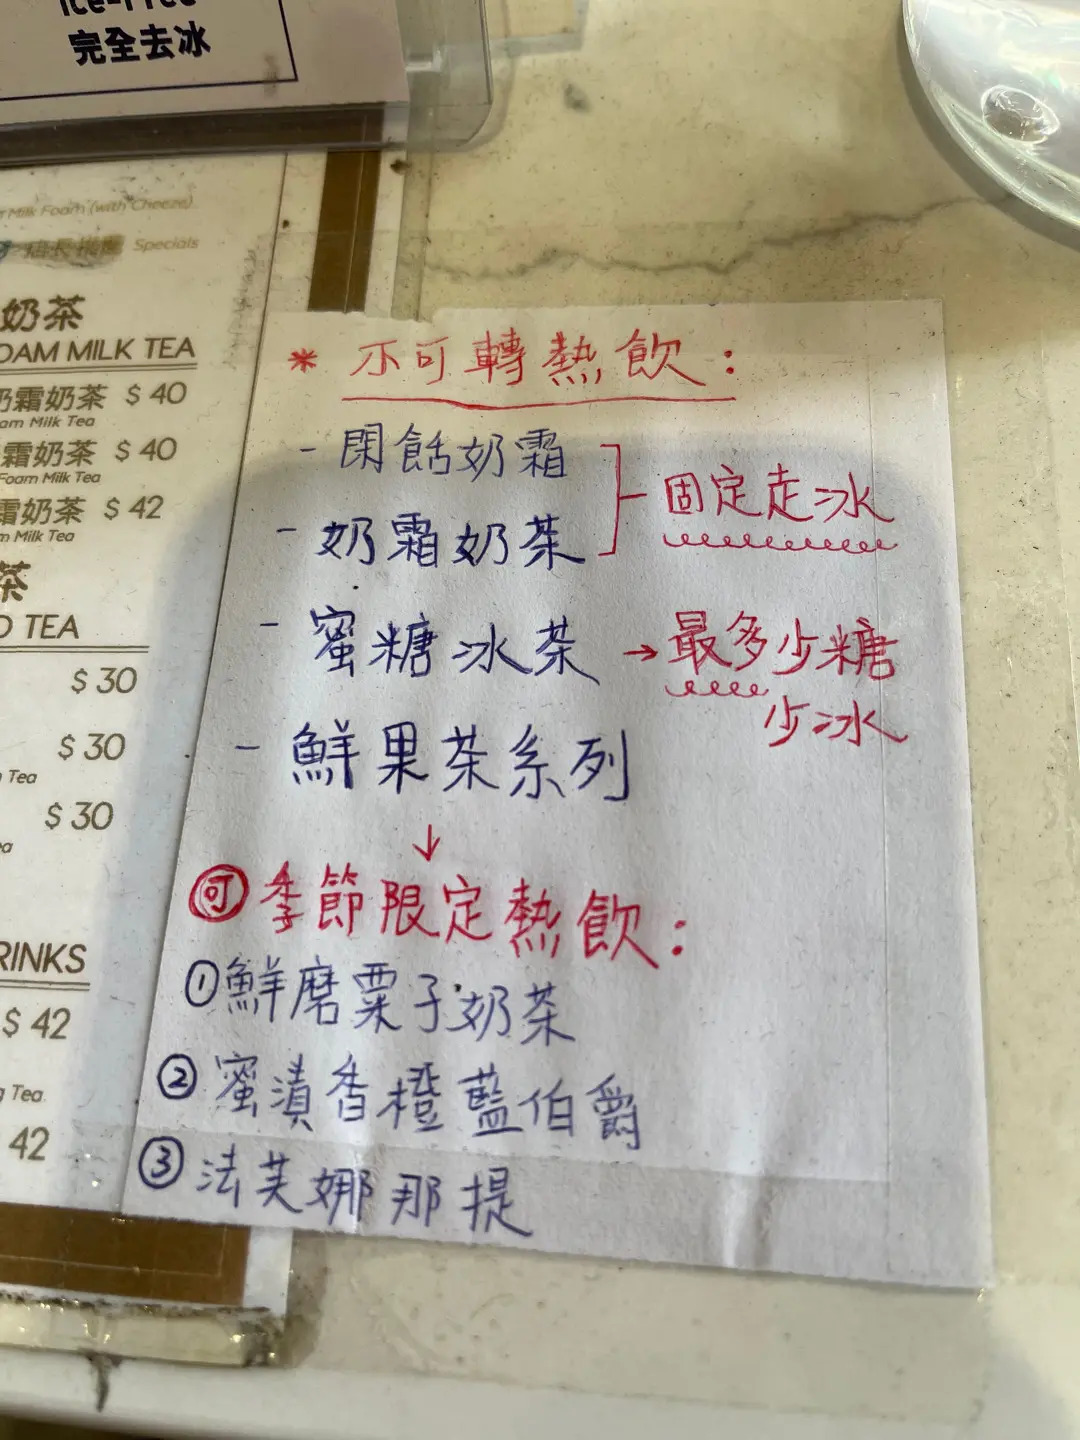 完全去冰
Milk Foam (with Cheeze)
Specials
奶茶
OAM MILK TEA
奶霜奶茶 $ 40
am Milk Tea
霜奶茶 $ 40
Foam Milk Tea
霜奶茶 $ 42
m Milk Tea
茶
TEA
$ 30
$ 30
Tea
$ 30
RINKS
$ 42
Tea
42
* 不可轉熱飲：
- 閑餂奶霜
- 奶霜奶茶
固定走冰
- 蜜糖冰茶 → 最多少糖
少冰
- 鮮果茶系列
↓
可 季節限定熱飲：
① 鮮磨粟子奶茶
② 蜜漬香橙藍伯爵
③ 法芙娜那提